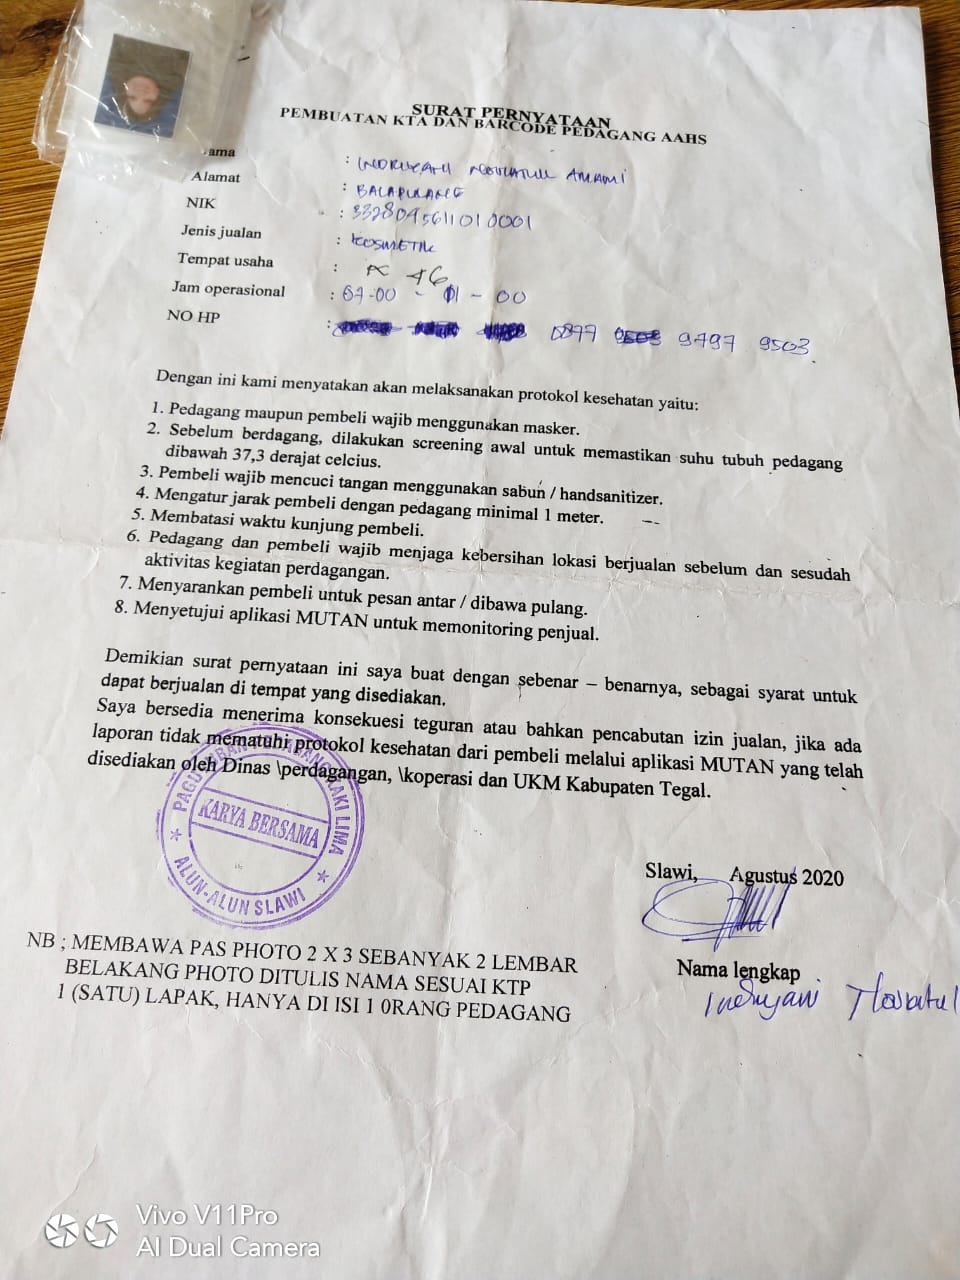 SURAT PERNYATAAN
PEMBUATAN KTA DAN BARCODE PEDAGANG AAHS
ama :
Alamat : BALAPULANG
NIK : 3328095611010001
Jenis jualan : KOSMETIK
Tempat usaha : 46
Jam operasional : 07-00 - 01 - 00
NO HP : 0877 9797 9503
Dengan ini kami menyatakan akan melaksanakan protokol kesehatan yaitu:
1. Pedagang maupun pembeli wajib menggunakan masker.
2. Sebelum berdagang, dilakukan screening awal untuk memastikan suhu tubuh pedagang
dibawah 37,3 derajat celcius.
3. Pembeli wajib mencuci tangan menggunakan sabun / handsanitizer.
4. Mengatur jarak pembeli dengan pedagang minimal 1 meter.
5. Membatasi waktu kunjung pembeli.
6. Pedagang dan pembeli wajib menjaga kebersihan lokasi berjualan sebelum dan sesudah
aktivitas kegiatan perdagangan.
7. Menyarankan pembeli untuk pesan antar / dibawa pulang.
8. Menyetujui aplikasi MUTAN untuk memonitoring penjual.
Demikian surat pernyataan ini saya buat dengan sebenar – benarnya, sebagai syarat untuk
dapat berjualan di tempat yang disediakan.
Saya bersedia menerima konsekuesi teguran atau bahkan pencabutan izin jualan, jika ada
laporan tidak mematuhi protokol kesehatan dari pembeli melalui aplikasi MUTAN yang telah
disediakan oleh Dinas \perdagangan, \koperasi dan UKM Kabupaten Tegal.
KAKI LIMA
KARYA BERSAMA
ALUN-ALUN SLAWI
Slawi, Agustus 2020
Nama lengkap
Indryani
NB ; MEMBAWA PAS PHOTO 2 X 3 SEBANYAK 2 LEMBAR
BELAKANG PHOTO DITULIS NAMA SESUAI KTP
1 (SATU) LAPAK, HANYA DI ISI 1 0RANG PEDAGANG
Vivo V11Pro
AI Dual Camera